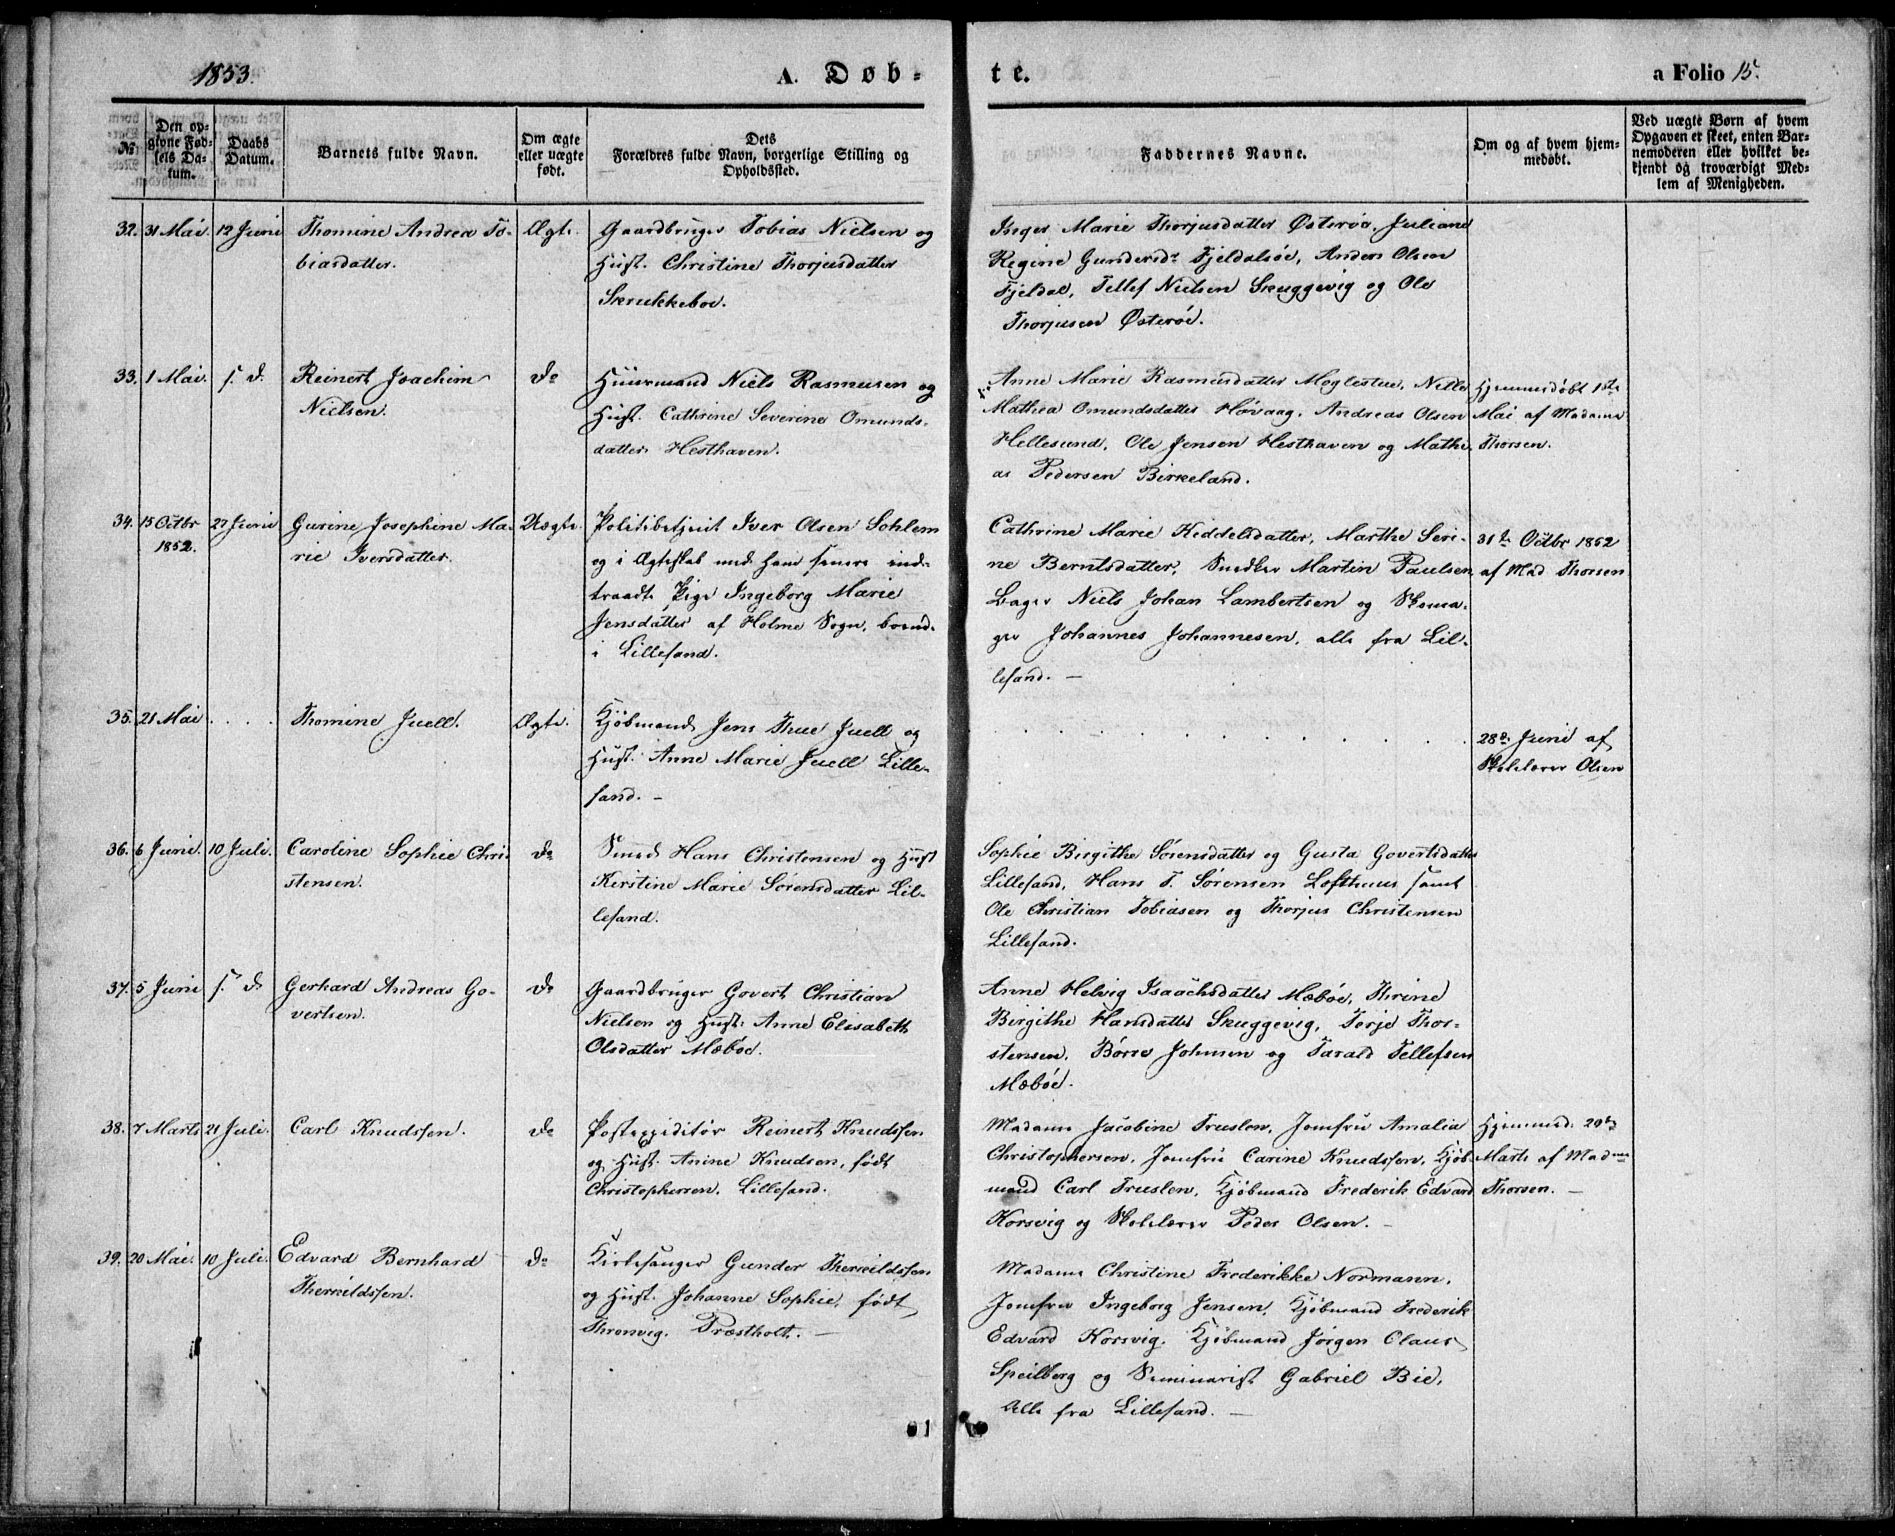 1853.
A. Døb-
te.
a Folio 15.
№
Den op-
givne Fød-
sels Da-
tum.
Daabs
Datum.
Barnets fulde Navn.
Om ægte
eller uægte
født.
Dets
Forældres fulde Navn, borgerlige Stilling og
Opholdssted.
Faddernes Navne.
Om og af hvem hjem-
medøbt.
Ved uægte Børn af hvem
Opgaven er skeet, enten Bar-
nemoderen eller hvilket be-
kjendt og troværdigt Med-
lem af Menigheden.
32. 31 Mai. 12 Juni Thomine Andrea To-
biasdatter.
Ægte.
Gaardbruger Tobias Nielsen og
Hust. Christine Thorjusdatter
Skrukkeboe.
Inger Marie Thorjusdatter Østerøe, Juliane
Regine Gundersdr Fjeldalsøe, Anders Olsen
Fjeldal, Tellef Nielsen Skuggevig og Ole
Thorjusen Østerøe.
33. 1 Mai. s. D. Reinert Joachim
Nielsen.
Do
Huusmand Niels Rasmusen og
Hust. Cathrine Severine Omunds-
datter Hesthaven.
Anne Marie Rasmusdatter Moglestue, Nille
Mathea Omundsdatter Høvaag, Andreas Olsen
Hellesund, Ole Jensen Hesthaven og Mathi-
as Pedersen Birkeland.
Hjemmedøbt 1ste
Mai af Madame
Thorsen.
34. 15 Octbr
1852.
27 Juni Gurine Josephine Ma-
rie Iversdatter.
Uægte.
Politibetjent Iver Olsen Sohlem
og i Ægteskab med ham senere ind-
traadte Pige Ingeborg Marie
Jensdatter af Holme Sogn, boende
i Lillesand.
Cathrine Marie Kiddelsdatter, Marthe Seri-
ne Berntsdatter, Snedker Martin Paulsen,
Bager Niels Johan Lambertsen og Skoma-
ger Johannes Johannesen, alle fra Lil-
lesand. —
31te Octbr 1852
af Mad Thorsen
35. 21 Mai . . . . Thomine Juell.
Ægte.
Kjøbmand Jens Thue Juell og
Hust. Anne Marie Juell Lille-
sand. —
28de Juni af
Skolelærer Olsen
36. 6 Juni. 10 Juli. Caroline Sophie Chri-
stensen.
Do
Smed Hans Christensen og Hust
Kerstine Marie Sørensdatter Lil-
lesand.
Sophie Birgithe Sørensdatter og Gusta Govertsdatter
Lillesand, Hans T. Sørensen Lofthuus samt
Ole Christian Tobiasen og Thorjus Christensen
Lillesand.
37. 5 Juni s. D. Gerhard Andreas Go-
vertsen.
Do
Gaardbruger Govert Christian
Nielsen og Hust. Anne Elisabeth
Olsdatter Mæbøe.
Anne Helvig Isaachsdatter Mæbøe, Thrine
Birgithe Hansdatter Skuggevig, Terje Thor-
stensen, Børre Johnsen og Tarald Tellefsen
Mæbøe.
38. 7 Marts 21 Juli. Carl Knudssen.
Do
Postexpiditør Reinert Knudssen
og Hust. Anine Knudsen, født
Christophersen, Lillesand.
Madame Jacobine Truslen, Jomfru Amalia
Christophersen, Jomfru Carine Knudssen, Kjøb-
mand Carl Truslen, Kjøbmand Frederik Edvard
Korsvig og Skolelærer Peder Olsen. —
Hjemmed. 29de
Marts af Madme
Thorsen. —
39. 20 Mai. 10 Juli. Edvard Bernhard
Therkildssen.
Do
Kirkesanger Gunder Therkildssen
og Hust. Johanne Sophie, født
Thronvig, Præstholt. —
Madame Christine Frederikke Normann,
Jomfru Ingeborg Jensen, Kjøbmand Frederik
Edvard Korsvig, Kjøbmand Jørgen Claus
Speilberg og Seminarist Gabriel Bie,
Alle fra Lillesand. —